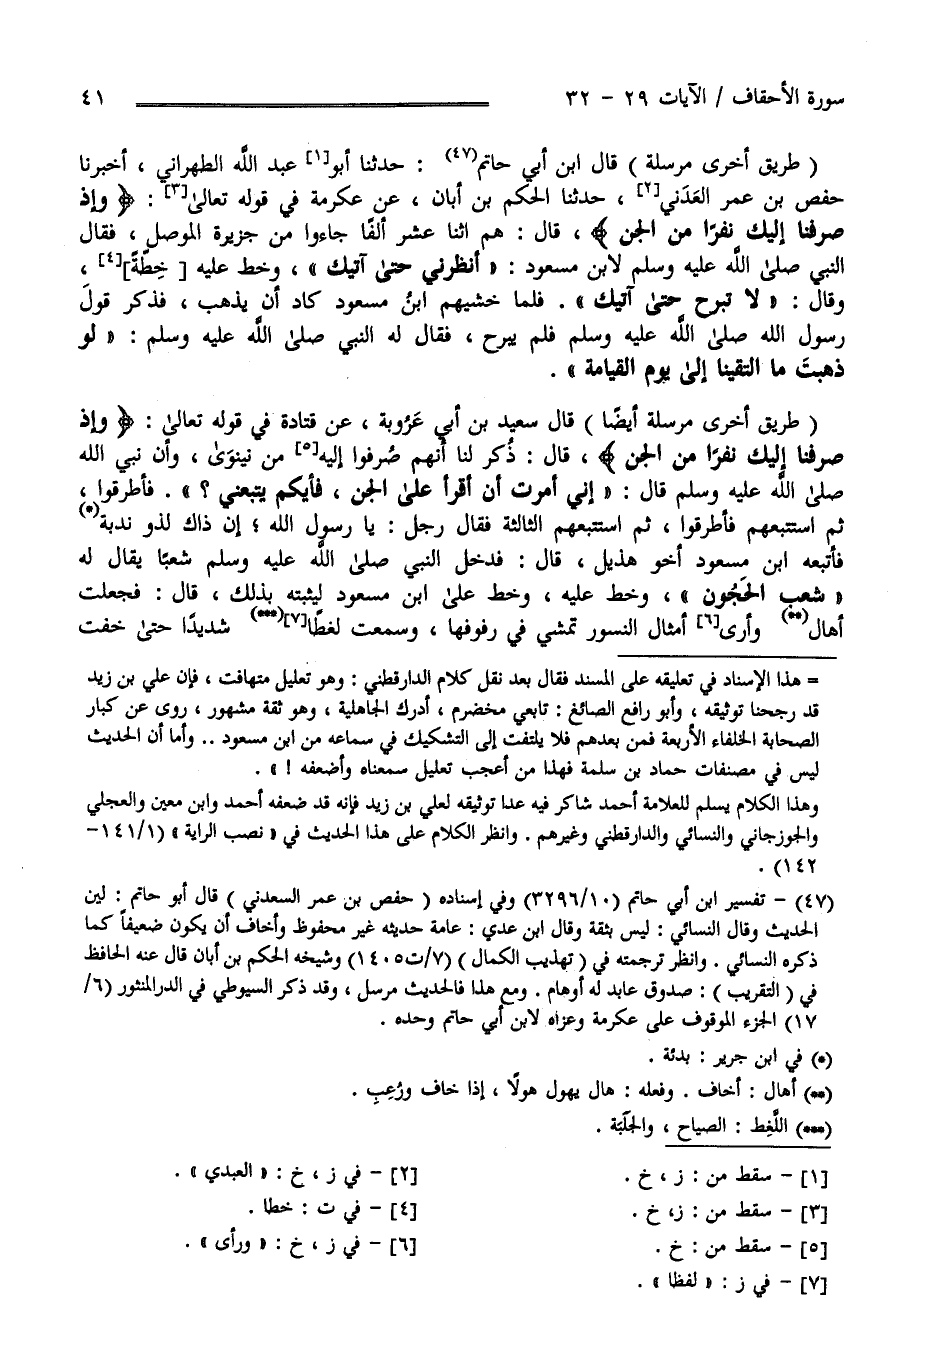 سورة الأحقاف / الآيات ٢٩ - ٣٢ ٤١
( طريق أخرى مرسلة ) قال ابن أبي حاتم(٤٧) : حدثنا أبو[١] عبد اللَّه الطهراني ، أخبرنا
حفص بن عمر العَدَني[٢] ، حدثنا الحكم بن أبان ، عن عكرمة في قوله تعالى[٣] : ﴿ وإذ
صرفنا إليك نفرًا من الجن ﴾ ، قال : هم اثنا عشر ألفًا جاءوا من جزيرة الموصل ، فقال
النبي صلى اللَّه عليه وسلم لابن مسعود : « أنظرني حتى آتيك » ، وخط عليه [ خِطَّةً][٤] ،
وقال : « لا تبرح حتى آتيك » . فلما خشيهم ابنُ مسعود كاد أن يذهب ، فذكر قولَ
رسول الله صلى اللَّه عليه وسلم فلم يبرح ، فقال له النبي صلى اللَّه عليه وسلم : « لو
ذهبتَ ما التقينا إلى يوم القيامة » .
( طريق أخرى مرسلة أيضًا ) قال سعيد بن أبي عَرُوبة ، عن قتادة في قوله تعالى : ﴿ وإذ
صرفنا إليك نفرًا من الجن ﴾ ، قال : ذُكر لنا أنهم صُرفوا إليه[٥] من نينوَى ، وأن نبي الله
صلى اللَّه عليه وسلم قال : « إني أمرت أن أقرأ على الجن ، فأيكم يتبعني ؟ » . فأطرقوا ،
ثم استتبعهم فأطرقوا ، ثم استتبعهم الثالثة فقال رجل : يا رسول الله ؛ إن ذاك لذو ندبة(*)
فأتبعه ابن مسعود أخو هذيل ، قال : فدخل النبي صلى اللَّه عليه وسلم شعبًا يقال له
« شعب الحَجُون » ، وخط عليه ، وخط على ابن مسعود ليثبته بذلك ، قال : فجعلت
أهال(**) وأرى[٦] أمثال النسور تمشي في رفوفها ، وسمعت لغطًا[٧](***) شديدًا حتى خفت
= هذا الإسناد في تعليقه على المسند فقال بعد نقل كلام الدارقطني : وهو تعليل متهافت ، فإن علي بن زيد
قد رجحنا توثيقه ، وأبو رافع الصائغ : تابعي مخضرم ، أدرك الجاهلية ، وهو ثقة مشهور ، روى عن كبار
الصحابة الخلفاء الأربعة فمن بعدهم فلا يلتفت إلى التشكيك في سماعه من ابن مسعود .. وأما أن الحديث
ليس في مصنفات حماد بن سلمة فهذا من أعجب تعليل سمعناه وأضعفه ! » .
وهذا الكلام يسلم للعلامة أحمد شاكر فيه عدا توثيقه لعلي بن زيد فإنه قد ضعفه أحمد وابن معين والعجلي
والجوزجاني والنسائي والدارقطني وغيرهم . وانظر الكلام على هذا الحديث في « نصب الراية » (١٤١/١-
١٤٢) .
(٤٧) - تفسير ابن أبي حاتم (٣٢٩٦/١٠) وفي إسناده ( حفص بن عمر السعدني ) قال أبو حاتم : لين
الحديث وقال النسائي : ليس بثقة وقال ابن عدي : عامة حديثه غير محفوظ وأخاف أن يكون ضعيفاً كما
ذكره النسائي . وانظر ترجمته في ( تهذيب الكمال ) (٧/ت١٤٠٥) وشيخه الحكم بن أبان قال عنه الحافظ
في ( التقريب ) : صدوق عابد له أوهام . ومع هذا فالحديث مرسل ، وقد ذكر السيوطي في الدرالمنثور (٦/
١٧) الجزء الموقوف على عكرمة وعزاه لابن أبي حاتم وحده .
(*) في ابن جرير : بدئة .
(**) أهال : أخاف . وفعله : هال يهول هولًا ، إذا خاف ورُعِب .
(***) اللَّغِط : الصياح ، والجَلَبَة .
[١] - سقط من : ز ، خ . [٢] - في ز ، خ : « العبدي » .
[٣] - سقط من : ز، خ . [٤] - في ت : خطا .
[٥] - سقط من : خ . [٦] - في ز ، خ : « ورأى » .
[٧] - في ز : « لفظا » .